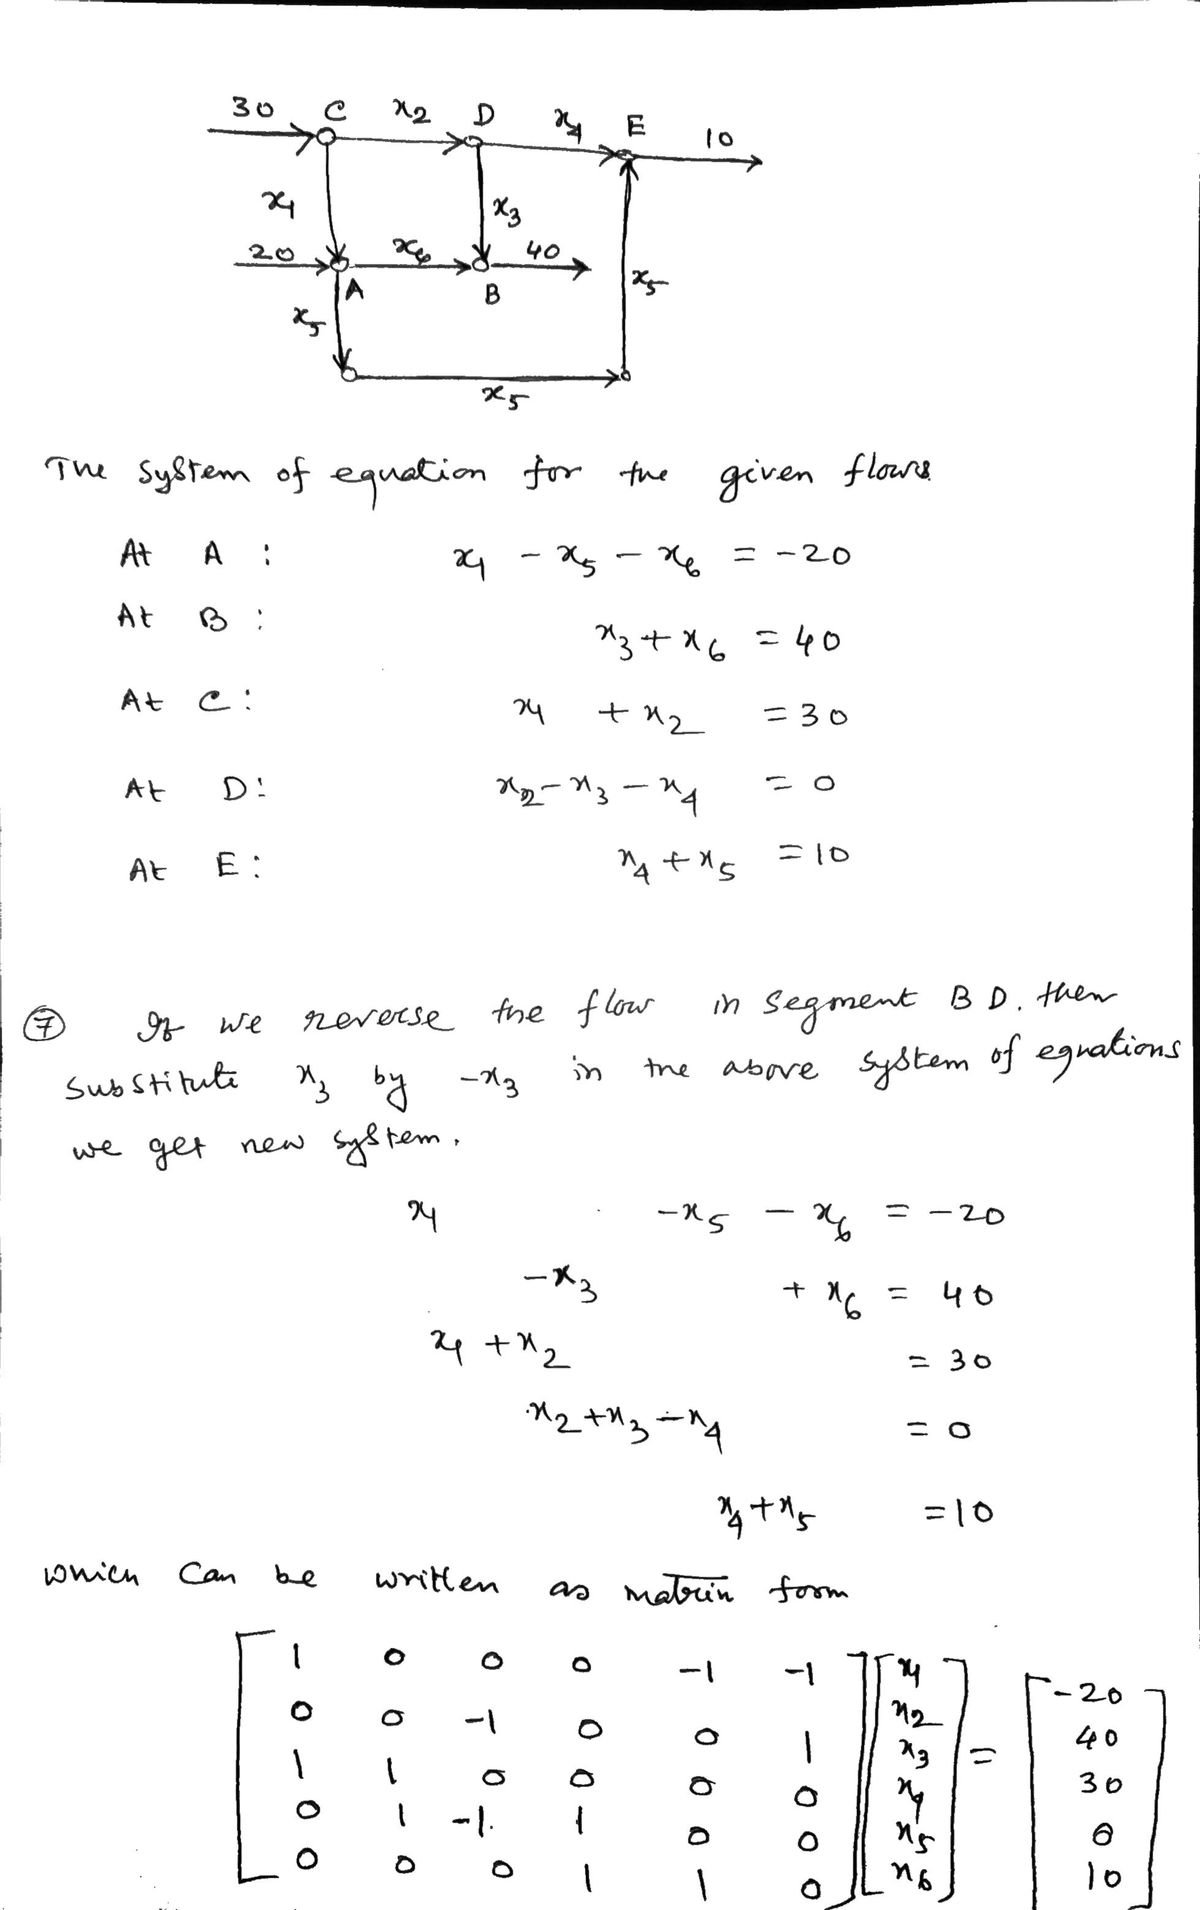 30 C x₂ D x₄ E 10
x₁ x₃
20 x₆ 40
A B x₅
x₅
x₅
The system of equation for the given flows.
At A : x₁ - x₅ - x₆ = -20
At B : x₃ + x₆ = 40
At C : x₁ + x₂ = 30
At D : x₂ - x₃ - x₄ = 0
At E : x₄ + x₅ = 10
⑦ If we reverse the flow in segment BD. then
substitute x₃ by -x₃ in the above system of equations
we get new system.
x₁ -x₅ - x₆ = -20
-x₃ + x₆ = 40
x₁ + x₂ = 30
x₂ + x₃ - x₄ = 0
x₄ + x₅ = 10
which can be written as matrix form
1 0 0 0 -1 -1 x₁ -20
0 0 -1 0 0 1 x₂ 40
1 1 0 0 0 0 x₃ = 30
0 1 -1 1 0 0 x₄ 0
0 0 0 1 1 0 x₅ 10
x₆